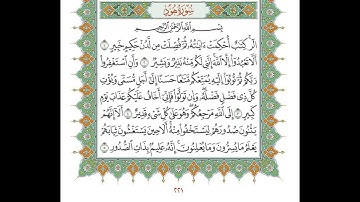 سُورَةُ هُودٍ
بِسْمِ اللَّهِ الرَّحْمَٰنِ الرَّحِيمِ
الٓر ۚ كِتَابٌ أُحْكِمَتْ آيَاتُهُ ثُمَّ فُصِّلَتْ مِن لَّدُنْ حَكِيمٍ خَبِيرٍ ١
أَلَّا تَعْبُدُوا إِلَّا اللَّهَ ۚ إِنَّنِي لَكُم مِّنْهُ نَذِيرٌ وَبَشِيرٌ ٢ وَأَنِ اسْتَغْفِرُوا
رَبَّكُمْ ثُمَّ تُوبُوا إِلَيْهِ يُمَتِّعْكُم مَّتَاعًا حَسَنًا إِلَىٰ أَجَلٍ مُّسَمًّى وَيُؤْتِ
كُلَّ ذِي فَضْلٍ فَضْلَهُ ۖ وَإِن تَوَلَّوْا فَإِنِّي أَخَافُ عَلَيْكُمْ عَذَابَ يَوْمٍ
كَبِيرٍ ٣ إِلَى اللَّهِ مَرْجِعُكُمْ ۖ وَهُوَ عَلَىٰ كُلِّ شَيْءٍ قَدِيرٌ ٤ أَلَا إِنَّهُمْ
يَثْنُونَ صُدُورَهُمْ لِيَسْتَخْفُوا مِنْهُ ۚ أَلَا حِينَ يَسْتَغْشُونَ ثِيَابَهُمْ
يَعْلَمُ مَا يُسِرُّونَ وَمَا يُعْلِنُونَ ۚ إِنَّهُ عَلِيمٌ بِذَاتِ الصُّدُورِ ٥
٢٢١